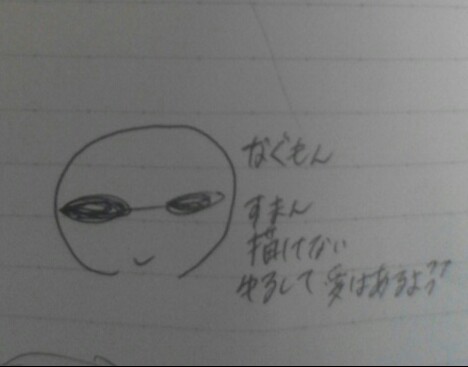 なぐもん
すまん
描けない
ゆるして 愛はあるよ??